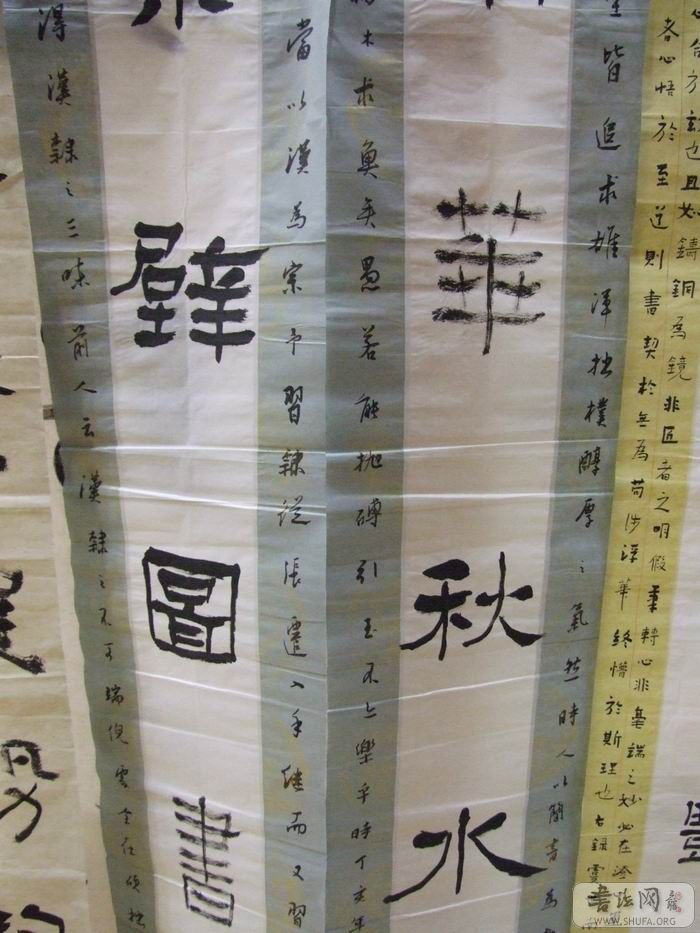 心合方玄也且如鑄銅為鏡非匠者之明假筆轉心非毫端之妙必在澄
者心悟於至道則書契於無為苟涉浮華終懵於斯理也右錄虞
皆追求雄渾拙樸醇厚之氣然時人以簡書為
華秋水
木求魚矣愚若能拋磚引玉不亦樂乎時丁亥年
當以漢為宗予習隸從張遷入手繼而又習
壁圖書
得漢隸之三昧前人云漢隸之不可端倪處全在拙
書法网
WWW.SHUFA.ORG